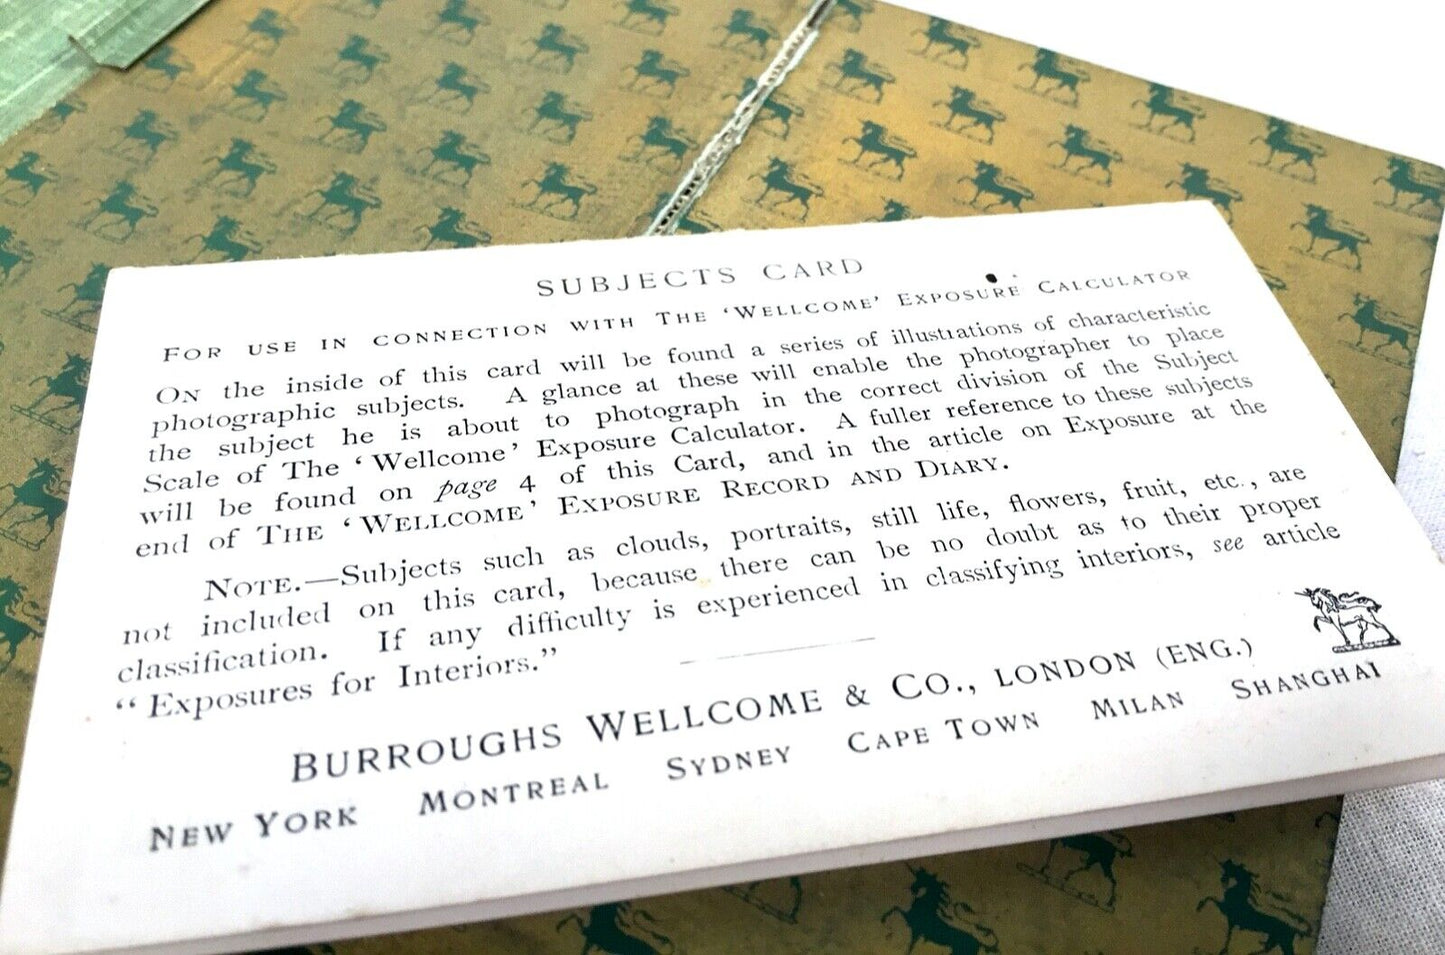 SUBJECTS CARD
FOR USE IN CONNECTION WITH THE 'WELLCOME' EXPOSURE CALCULATOR
ON the inside of this card will be found a series of illustrations of characteristic
photographic subjects. A glance at these will enable the photographer to place
the subject he is about to photograph in the correct division of the Subject
Scale of The 'Wellcome' Exposure Calculator. A fuller reference to these subjects
will be found on page 4 of this Card, and in the article on Exposure at the
end of THE 'WELLCOME' EXPOSURE RECORD AND DIARY.
NOTE.—Subjects such as clouds, portraits, still life, flowers, fruit, etc., are
not included on this card, because there can be no doubt as to their proper
classification. If any difficulty is experienced in classifying interiors, see article
“Exposures for Interiors.”
BURROUGHS WELLCOME & CO., LONDON (ENG.)
NEW YORK MONTREAL SYDNEY CAPE TOWN MILAN SHANGHAI